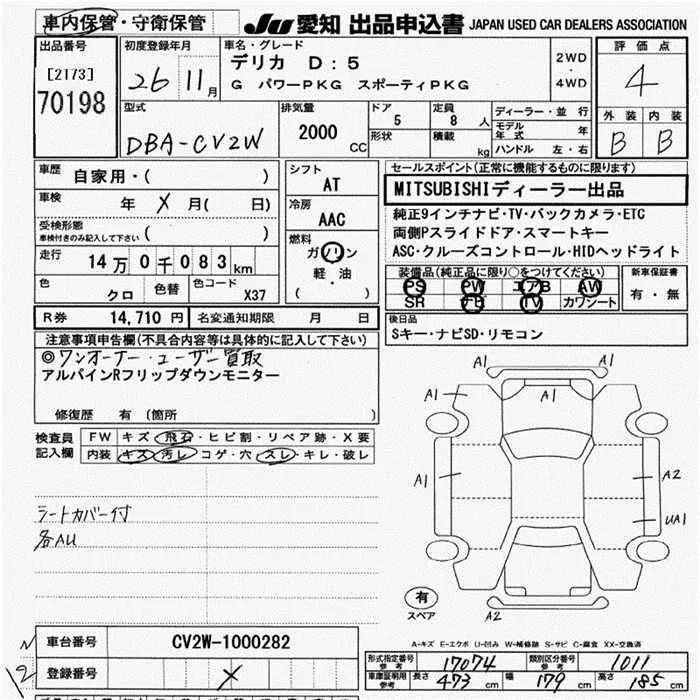 車内保管・守衛保管 JU 愛知 出品申込書 JAPAN USED CAR DEALERS ASSOCIATION
出品番号 初度登録年月 車名・グレード 評価点
[2173] 26 11月 デリカ D:5 2WD・4WD 4
70198 G パワーPKG スポーティPKG
外装 内装
型式 排気量 ドア 定員 ディーラー・並行 B B
DBA-CV2W 2000 CC 5 8人 モデル年式 年
形状 積載 kg ハンドル 左・右
車歴 自家用・( ) シフト セールスポイント(正常に機能するものに限ります)
AT MITSUBISHIディーラー出品
車検 年 X 月( 日) 冷房 純正9インチナビ・TV・バックカメラ・ETC
受検形態 AAC 両側Pスライドドア・スマートキー
車検付きのみ記入して下さい ( ) 燃料 ASC・クルーズコントロール・HIDヘッドライト
走行 14万0千083km ガソリン 装備品(純正品に限り○をつけてください) 新車保証書
軽・油 PS PW エアB AW 有・無
色 クロ 色替 色コード X37 ( ) SR ナビ TV カワシート
R券 14,710円 名変通知期限 月 日 後日品
注意事項申告欄(不具合内容等は具体的に記入して下さい) Sキー・ナビSD・リモコン
◎ワンオーナー・ユーザー買取
アルパインRフリップダウンモニター
修復歴 有 (箇所 )
検査員記入欄 FW キズ・飛石・ヒビ割・リペア跡・X要
内装 キズ・汚レ・コゲ・穴・スレ・キレ・破レ
シートカバー付
各AU
A1
A1 A1 A1
A1 A2
UA1
有
スペア A2
A-キズ E-エクボ U-凹み W-補修跡 S-サビ C-腐食 XX-交換済
車台番号 CV2W-1000282
登録番号 X
形式指定番号 参考 17074 類別区分番号 参考 1011
車庫証明用 参考 長さ 473cm 幅 179cm 高さ 185cm